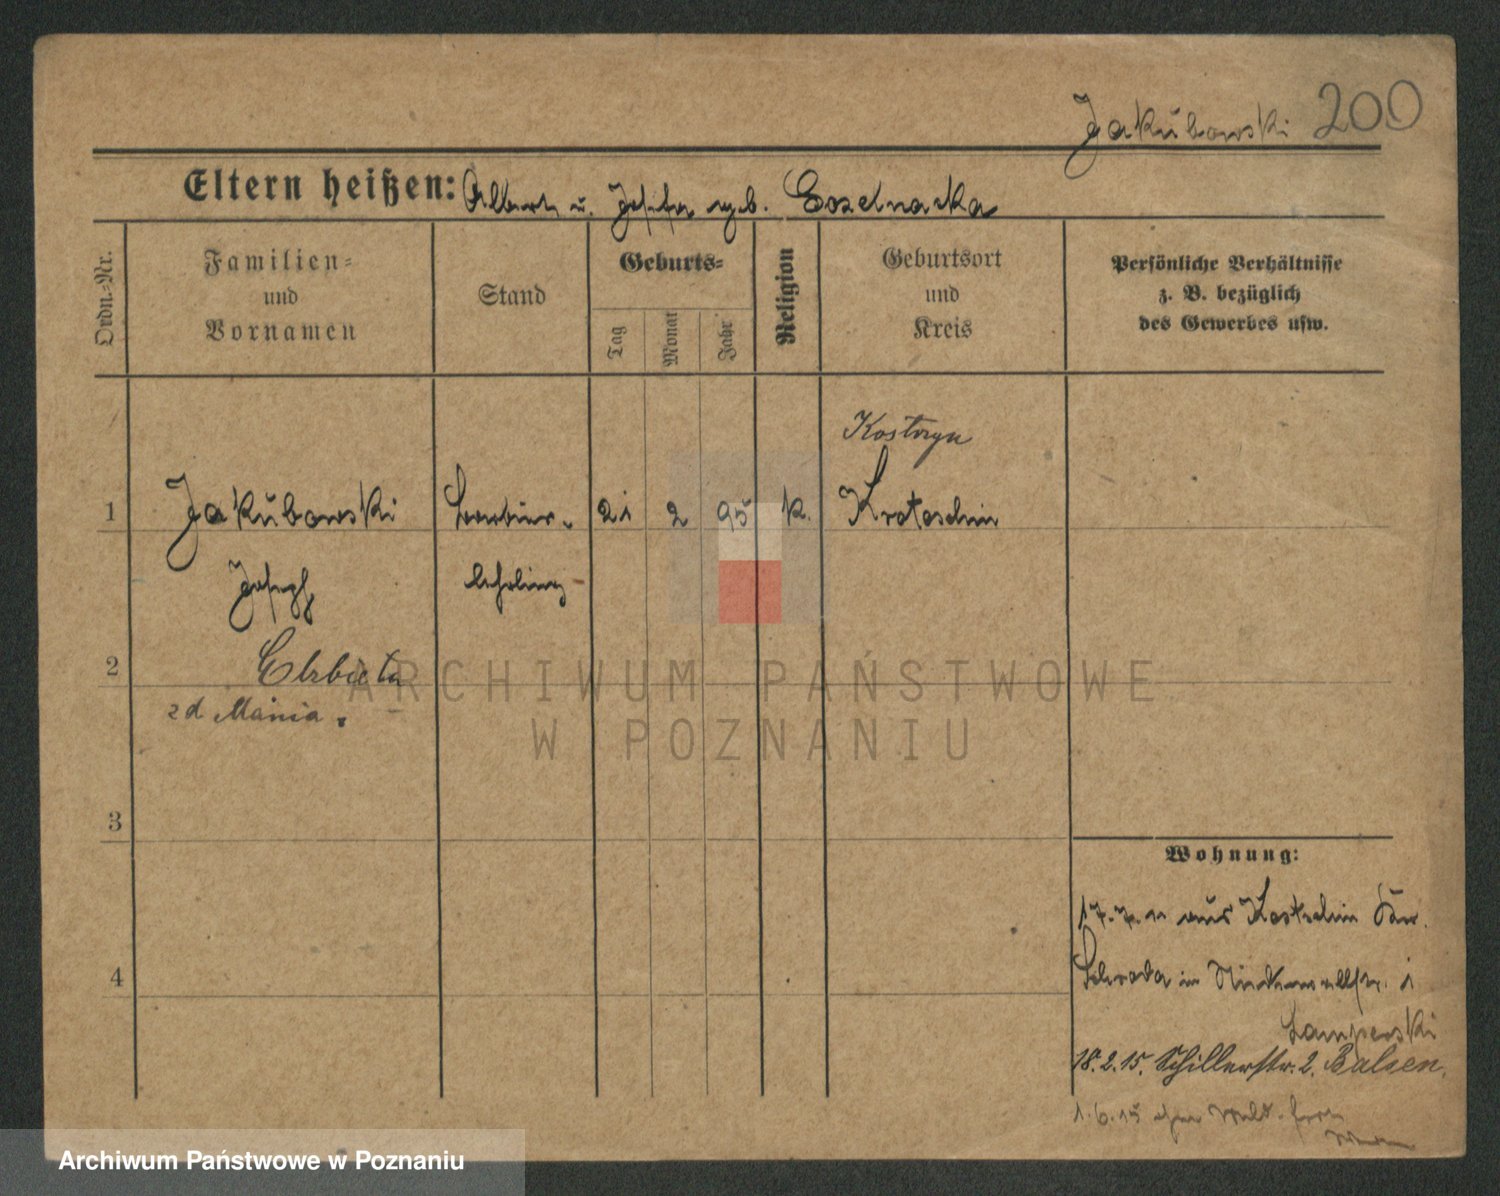 Jakubowski 200
Eltern heißen: Albert u. Josefa geb.
Ordn.-Nr.
Familien-
und
Vornamen
Stand
Geburts-
Tag
Monat
Jahr
Religion
Geburtsort
und
Kreis
Persönliche Verhältnisse
z. B. bezüglich
des Gewerbes usw.
Kostrzyn
1 Jakubowski Barbier- 21 2 95 k. Krotoschin
Joseph lehrling
2 Elzbieta
zd Mania
3
4
Wohnung:
17.7. aus Kostschin Kr.
Schroda in 1
Lamperski
18.2.15. Schillerstr. 2. Balsen.
1.6.15
ARCHIWUM PAŃSTWOWE
W POZNANIU
Archiwum Państwowe w Poznaniu